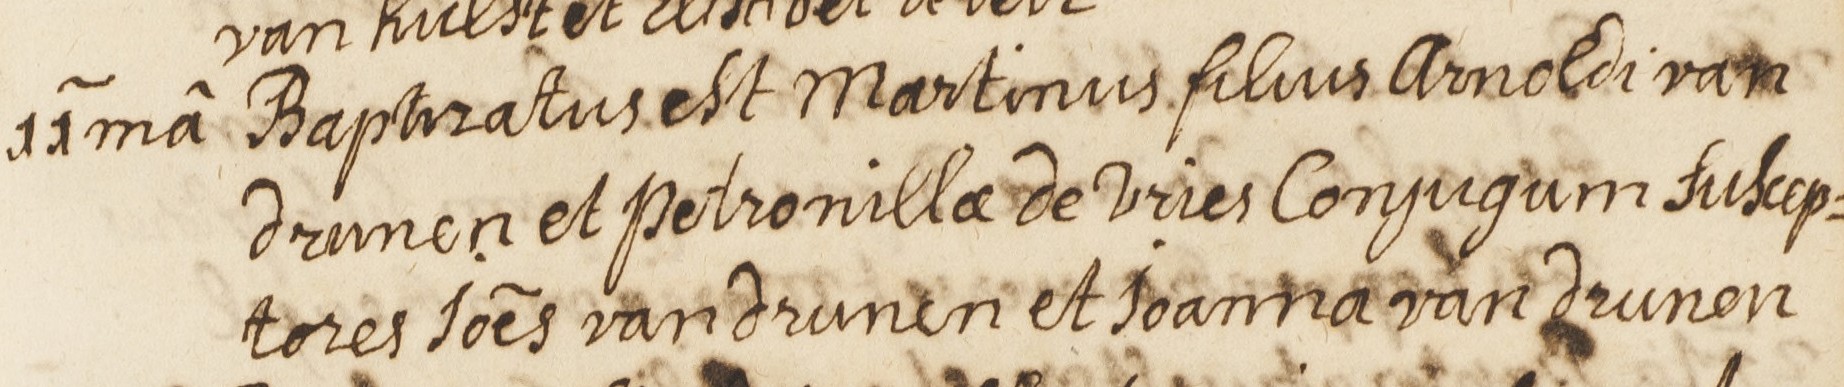 van hulst et
11ma Baptizatus est Martinus filius Arnoldi van
drunen et Petronillæ de Vries Conjugum Suscep-
tores Joẽs van drunen et Joanna van drunen